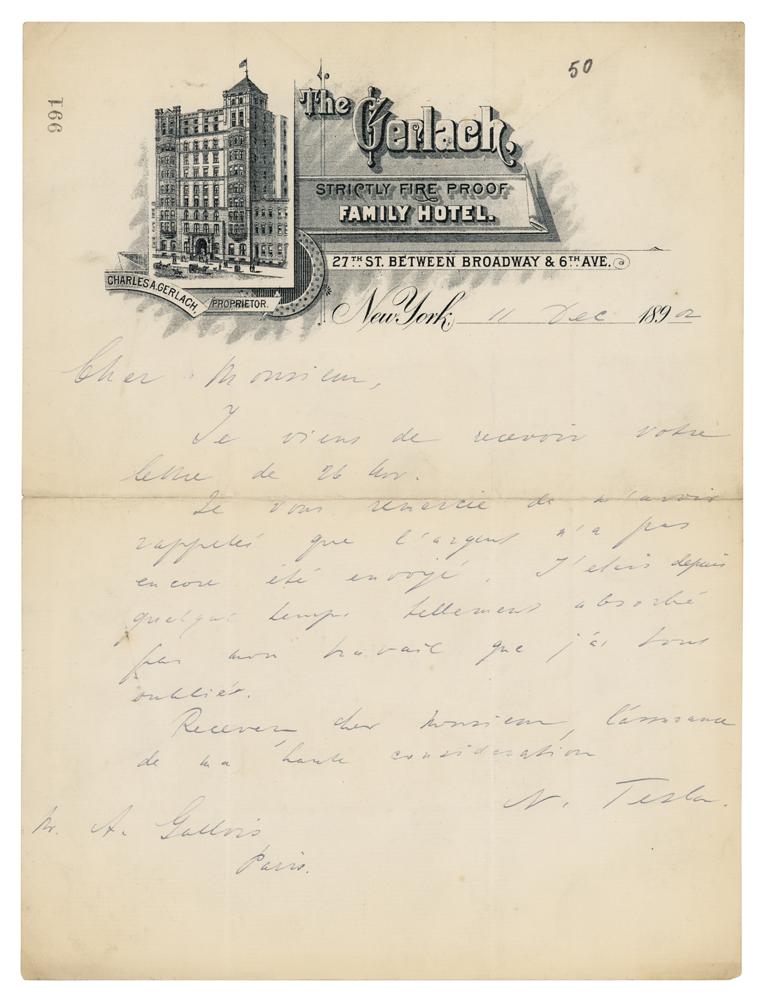 50
991
The Gerlach.
STRICTLY FIRE PROOF
FAMILY HOTEL.
27TH ST. BETWEEN BROADWAY & 6TH AVE.
CHARLES A. GERLACH,
PROPRIETOR.
New York, 11 Dec 1892
Cher Monsieur,
Je viens de recevoir votre
lettre de 26 Nov.
Je vous remercie de m'avoir
rappelés que l'argent n'a pas
encore été envoyé. J'etais depuis
quelque temps tellement absorbé
par mon travail que j'ai tout
oubliér.
Recevez cher Monsieur, l'assurance
de ma haute consideration
N. Tesla.
Mr. A. Gallois
Paris.